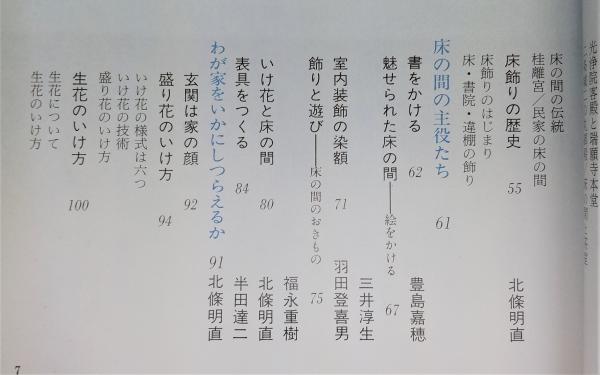 光浄院客殿と瑞願寺本堂
床の間の伝統
桂離宮／民家の床の間
床飾りの歴史 55 北條明直
床飾りのはじまり
床・書院・違棚の飾り
床の間の主役たち 61
書をかける 62 豊島嘉穂
魅せられた床の間――絵をかける 67
三井淳生
室内装飾の染額 71 羽田登喜男
飾りと遊び――床の間のおきもの 75
福永重樹
いけ花と床の間 80 北條明直
表具をつくる 84 半田達二
わが家をいかにしつらえるか 91 北條明直
玄関は家の顔 92
盛り花のいけ方 94
いけ花の様式は六つ
いけ花の技術
盛り花のいけ方
生花のいけ方 100
生花について
生花のいけ方
7